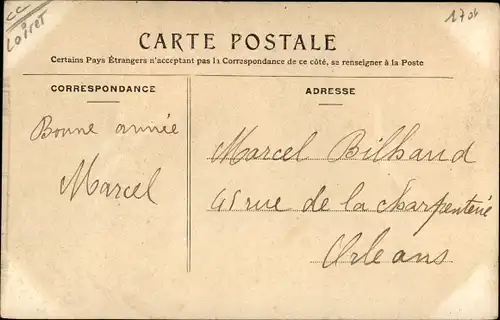 CC
Loiret
1701
CARTE POSTALE
Certains Pays Étrangers n'acceptant pas la Correspondance de ce côté, se renseigner à la Poste
CORRESPONDANCE
Bonne année
Marcel
ADRESSE
Marcel Bilhaud
45 rue de la Charpenterie
Orleans